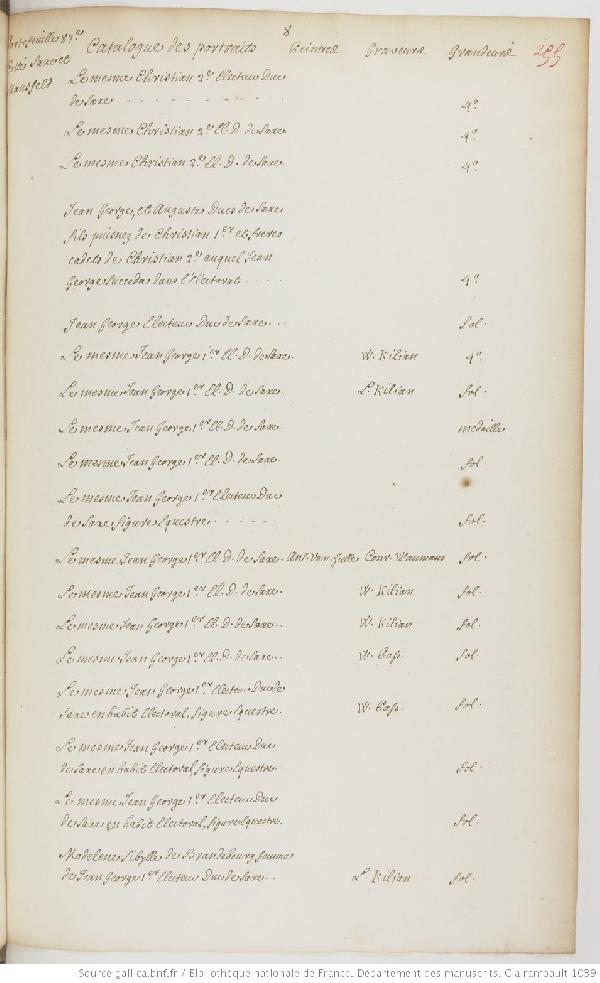 8
Portefeuille 87.e
Saxe et
Mansfeld
Catalogue des portraits Peintres Graveurs Grandeurs 255
Le mesme Christian 2.e Electeur Duc
de Saxe 4.o
Le mesme Christian 2.e El. D. de Saxe 4.o
Le mesme Christian 2.e El. D. de Saxe 4.o
Jean George, et Auguste Ducs de Saxe
fils puisnez de Christian 1.er et freres
cadets de Christian 2.e auquel Jean
George succeda dans l'Electorat 4.o
Jean George Electeur Duc de Saxe fol.
Le mesme Jean George 1.er El. D. de Saxe. W. Kilian 4.o
Le mesme Jean George 1.er El. D. de Saxe L. Kilian fol.
Le mesme Jean George 1.er El. D. de Saxe medaille
Le mesme Jean George 1.er El. D. de Saxe. fol.
Le mesme Jean George 1.er Electeur Duc
de Saxe figure Equestre fol.
Le mesme Jean George 1.er El. D. de Saxe Ant. Van Hulle Conr. Waumans fol.
Le mesme Jean George 1.er El. D. de Saxe. W. Kilian fol.
Le mesme Jean George 1.er El. D. de Saxe W. Kilian fol.
Le mesme Jean George 1.er El. D. de Saxe W. fol.
Le mesme Jean George 1.er Electeur Duc de
Saxe en habit Electoral, figure Equestre. W. fol.
Le mesme Jean George 1.er Electeur Duc
de Saxe en habit Electoral, figure Equestre fol.
Le mesme Jean George 1.er Electeur Duc
de Saxe en habit Electoral, figure Equestre. fol.
Madelene Sibylle de Brandebourg femme
de Jean George 1.er Electeur Duc de Saxe L. Kilian fol.
Source gallica.bnf.fr / Bibliothèque nationale de France. Département des manuscrits. Clairambault 1039